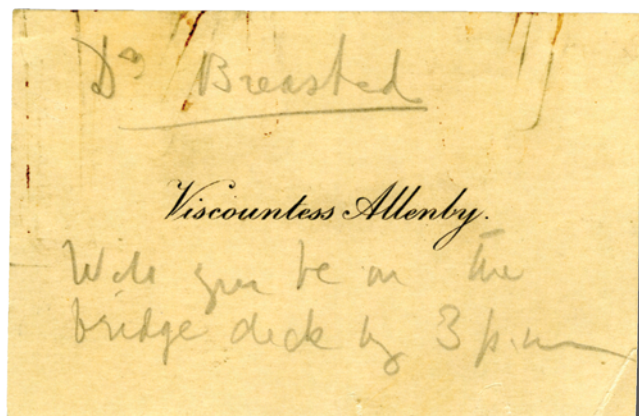 Dr Breasted
Viscountess Allenby.
Will you be on the
bridge deck by 3 p.m.